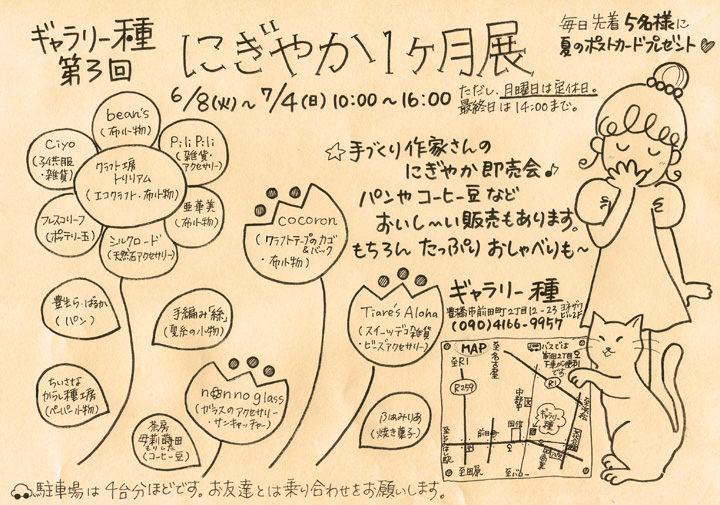 ギャラリー種
第3回
にぎやか1ヶ月展
毎日先着5名様に
夏のポストカードプレゼント♡
6/8(火)〜7/4(日) 10:00〜16:00
ただし、月曜日は定休日。
最終日は14:00まで。
bean's
(布小物)
Ciyo
(子供服
・雑貨)
PiliPili
(雑貨・
アクセサリー)
クラフト工房
トリリアム
(エコクラフト・布小物)
フレスコリーフ
(ポテリー玉)
亜華美
(布小物)
シルクロード
(天然石アクセサリー)
☆手づくり作家さんの
にぎやか即売会♪
パンやコーヒー豆など
おいし〜い販売もあります。
もちろんたっぷりおしゃべりも〜
cocoron
(クラフトテープのカゴ
&バック
・布小物)
豊生ら・ぱるか
(パン)
手編み「絲」
(夏糸の小物)
Tiare's Aloha
(スイーツデコ雑貨
・ビーズアクセサリー)
ちいさな
からし種工房
(ペーパー小物)
nonno glass
(ガラスのアクセサリー
・サンキャッチャー)
茶房
母莉蒔田
(コーヒー豆)
ふぁみりあ
(焼き菓子)
ギャラリー種
豊橋市前田町2丁目12-23
ヨネザワ
ビル2F
(090)4166-9957
MAP
至R1
至名古屋
バスでは
前田2丁目
下車が便利
です
R259
R1
ギャラリー
種
前田
至浜松
至田原
駐車場は4台分ほどです。お友達とは乗り合わせをお願いします。